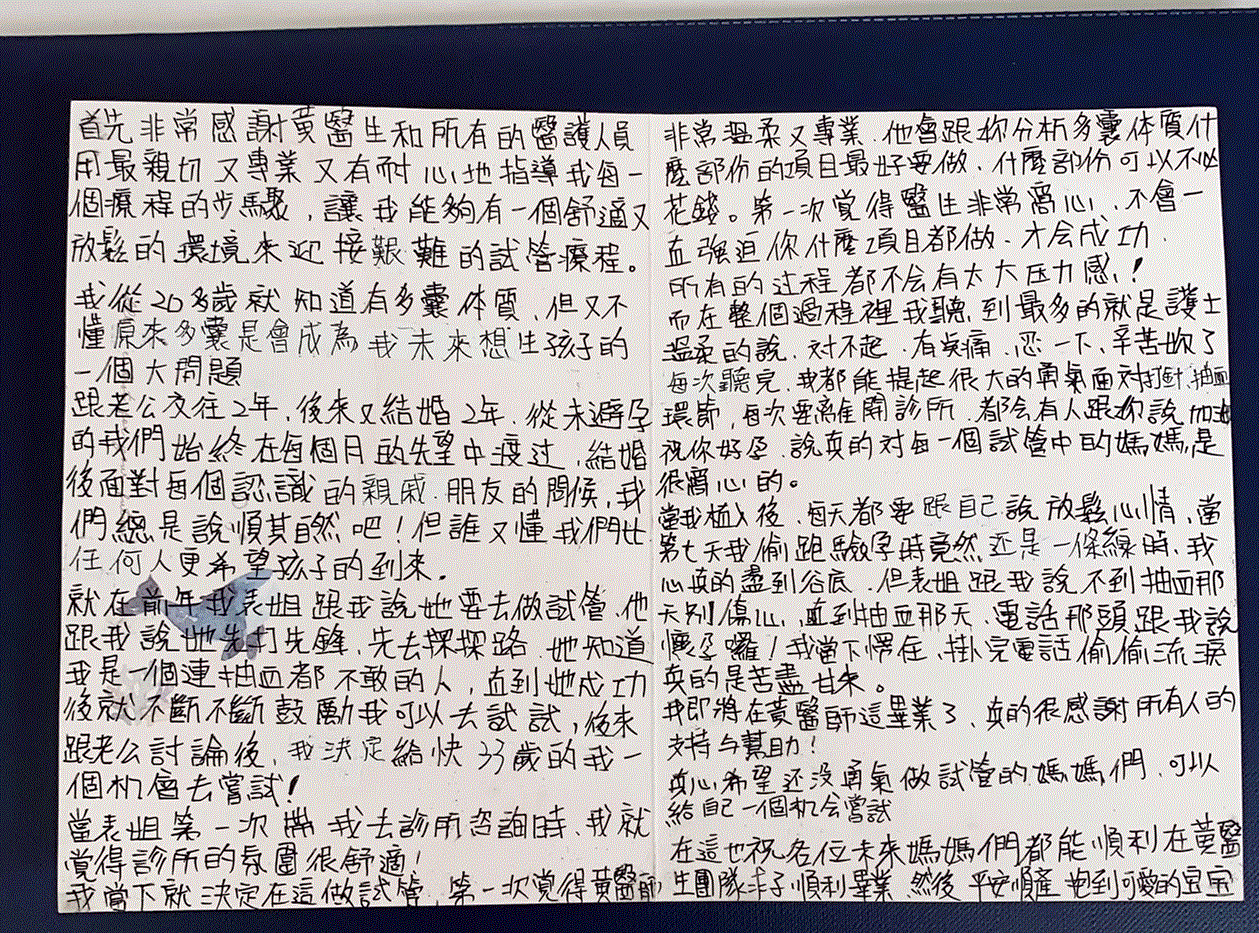 首先非常感謝黃醫生和所有的醫護人員
用最親切又專業又有耐心地指導我每一
個療程的步驟，讓我能夠有一個舒適又
放鬆的環境來迎接艱難的試管療程。
我從20多歲就知道有多囊体質，但又不
懂原來多囊是會成為我未來想生孩子的
一個大問題
跟老公交往2年，後來又結婚2年，從未避孕
的我們始終在每個月的失望中渡过，結婚
後面對每個認識的親戚、朋友的問候，我
們總是說順其自然吧！但誰又懂我們比
任何人更希望孩子的到來。
就在前年我表姐跟我說她要去做試管，他
跟我說她先打先鋒，先去探探路，她知道
我是一個連抽血都不敢的人，直到她成功
後就不斷不斷鼓勵我可以去試試，後來
跟老公討論後，我決定給快33歲的我一
個机會去嘗試！
當表姐第一次帶我去診所咨詢時，我就
覺得診所的氛圍很舒適！
我當下就決定在這做試管，第一次覺得黃醫師
非常溫柔又專業，他會跟妳分析多囊体質什
麼部份的項目最好要做，什麼部份可以不必
花錢。第一次覺得醫生非常窩心，不會一
直強迫你什麼項目都做，才会成功，
所有的过程都不会有太大压力感！
而在整個過程裡我聽到最多的就是護士
溫柔的說，对不起，有点痛，忍一下、辛苦妳了
每次聽完，我都能提起很大的勇氣面对打針、抽血
環節，每次要離開診所，都会有人跟妳說加油
祝你好孕，說真的对每一個試管中的媽媽是
很窩心的。
當我植入後，每天都要跟自己說放鬆心情，當
第七天我偷跑驗孕時竟然还是一條線時，我
心真的盪到谷底，但表姐跟我說不到抽血那
天別傷心，直到抽血那天，電話那頭跟我說
懷孕囉！我當下愣住，掛完電話偷偷流淚
真的是苦盡甘來。
我即將在黃醫師這畢業了，真的很感謝所有人的
支持与幫助！
真心希望还没勇氣做試管的媽媽們，可以
給自己一個机会嘗試
在這也祝各位未來媽媽們都能順利在黃醫
生團隊手順利畢業，然後平安順產抱到可愛的宝宝